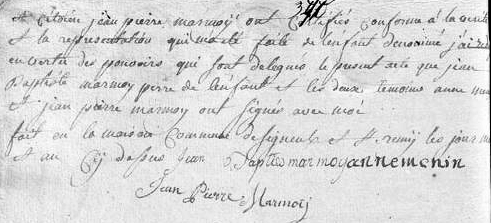 340
et citoien jean pierre marmoy ont certifiés conforme à la verité
et la representation qui ma été faite de lenfant denommé j'ai
en vertu des pouvoirs qui sont delegués le present acte que jean
Baptiste marmoy perre de lenfant et les deux temoins anne
et jean pierre marmoy ont signés avec moi
fait en la maison Commune de signeulx et st remy les jour
et an Cy dessus Jean Baptis marmoy anne menin
Jean Pierre Marmoy